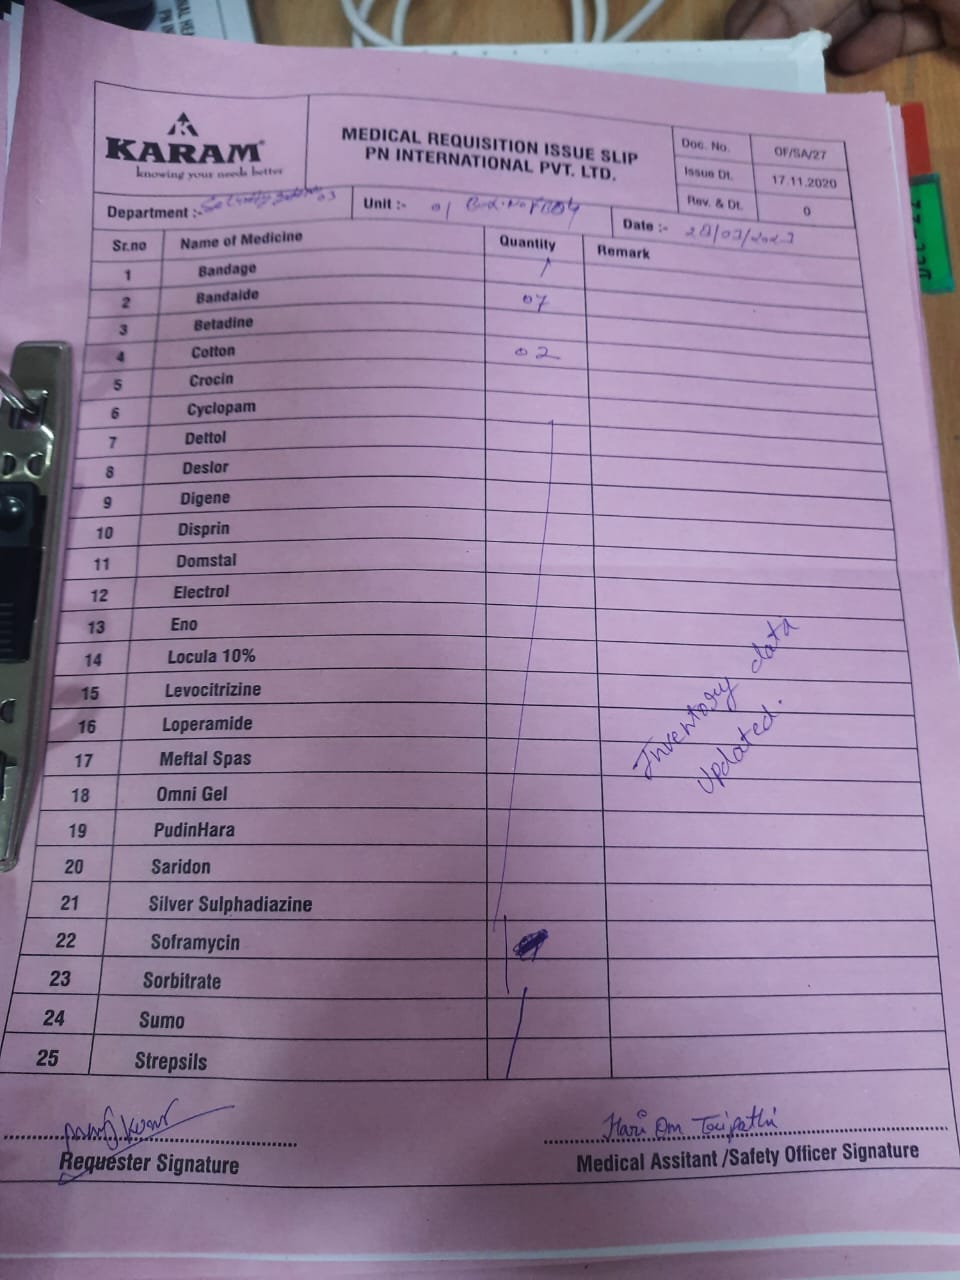 KARAM
knowing your needs better
MEDICAL REQUISITION ISSUE SLIP
PN INTERNATIONAL PVT. LTD.
Doc. No. OF/SA/27
Issue Dt. 17.11.2020
Rev. & Dt. 0
Department :-
Unit :- 01
Date :-
Sr.no Name of Medicine Quantity Remark
1 Bandage
2 Bandaide 07
3 Betadine
4 Cotton 02
5 Crocin
6 Cyclopam
7 Dettol
8 Deslor
9 Digene
10 Disprin
11 Domstal
12 Electrol
13 Eno
14 Locula 10%
15 Levocitrizine
16 Loperamide
17 Meftal Spas
18 Omni Gel
19 PudinHara
20 Saridon
21 Silver Sulphadiazine
22 Soframycin
23 Sorbitrate
24 Sumo
25 Strepsils
Inventory data
Updated.
Hari Om Tripathi
Requester Signature
Medical Assitant /Safety Officer Signature